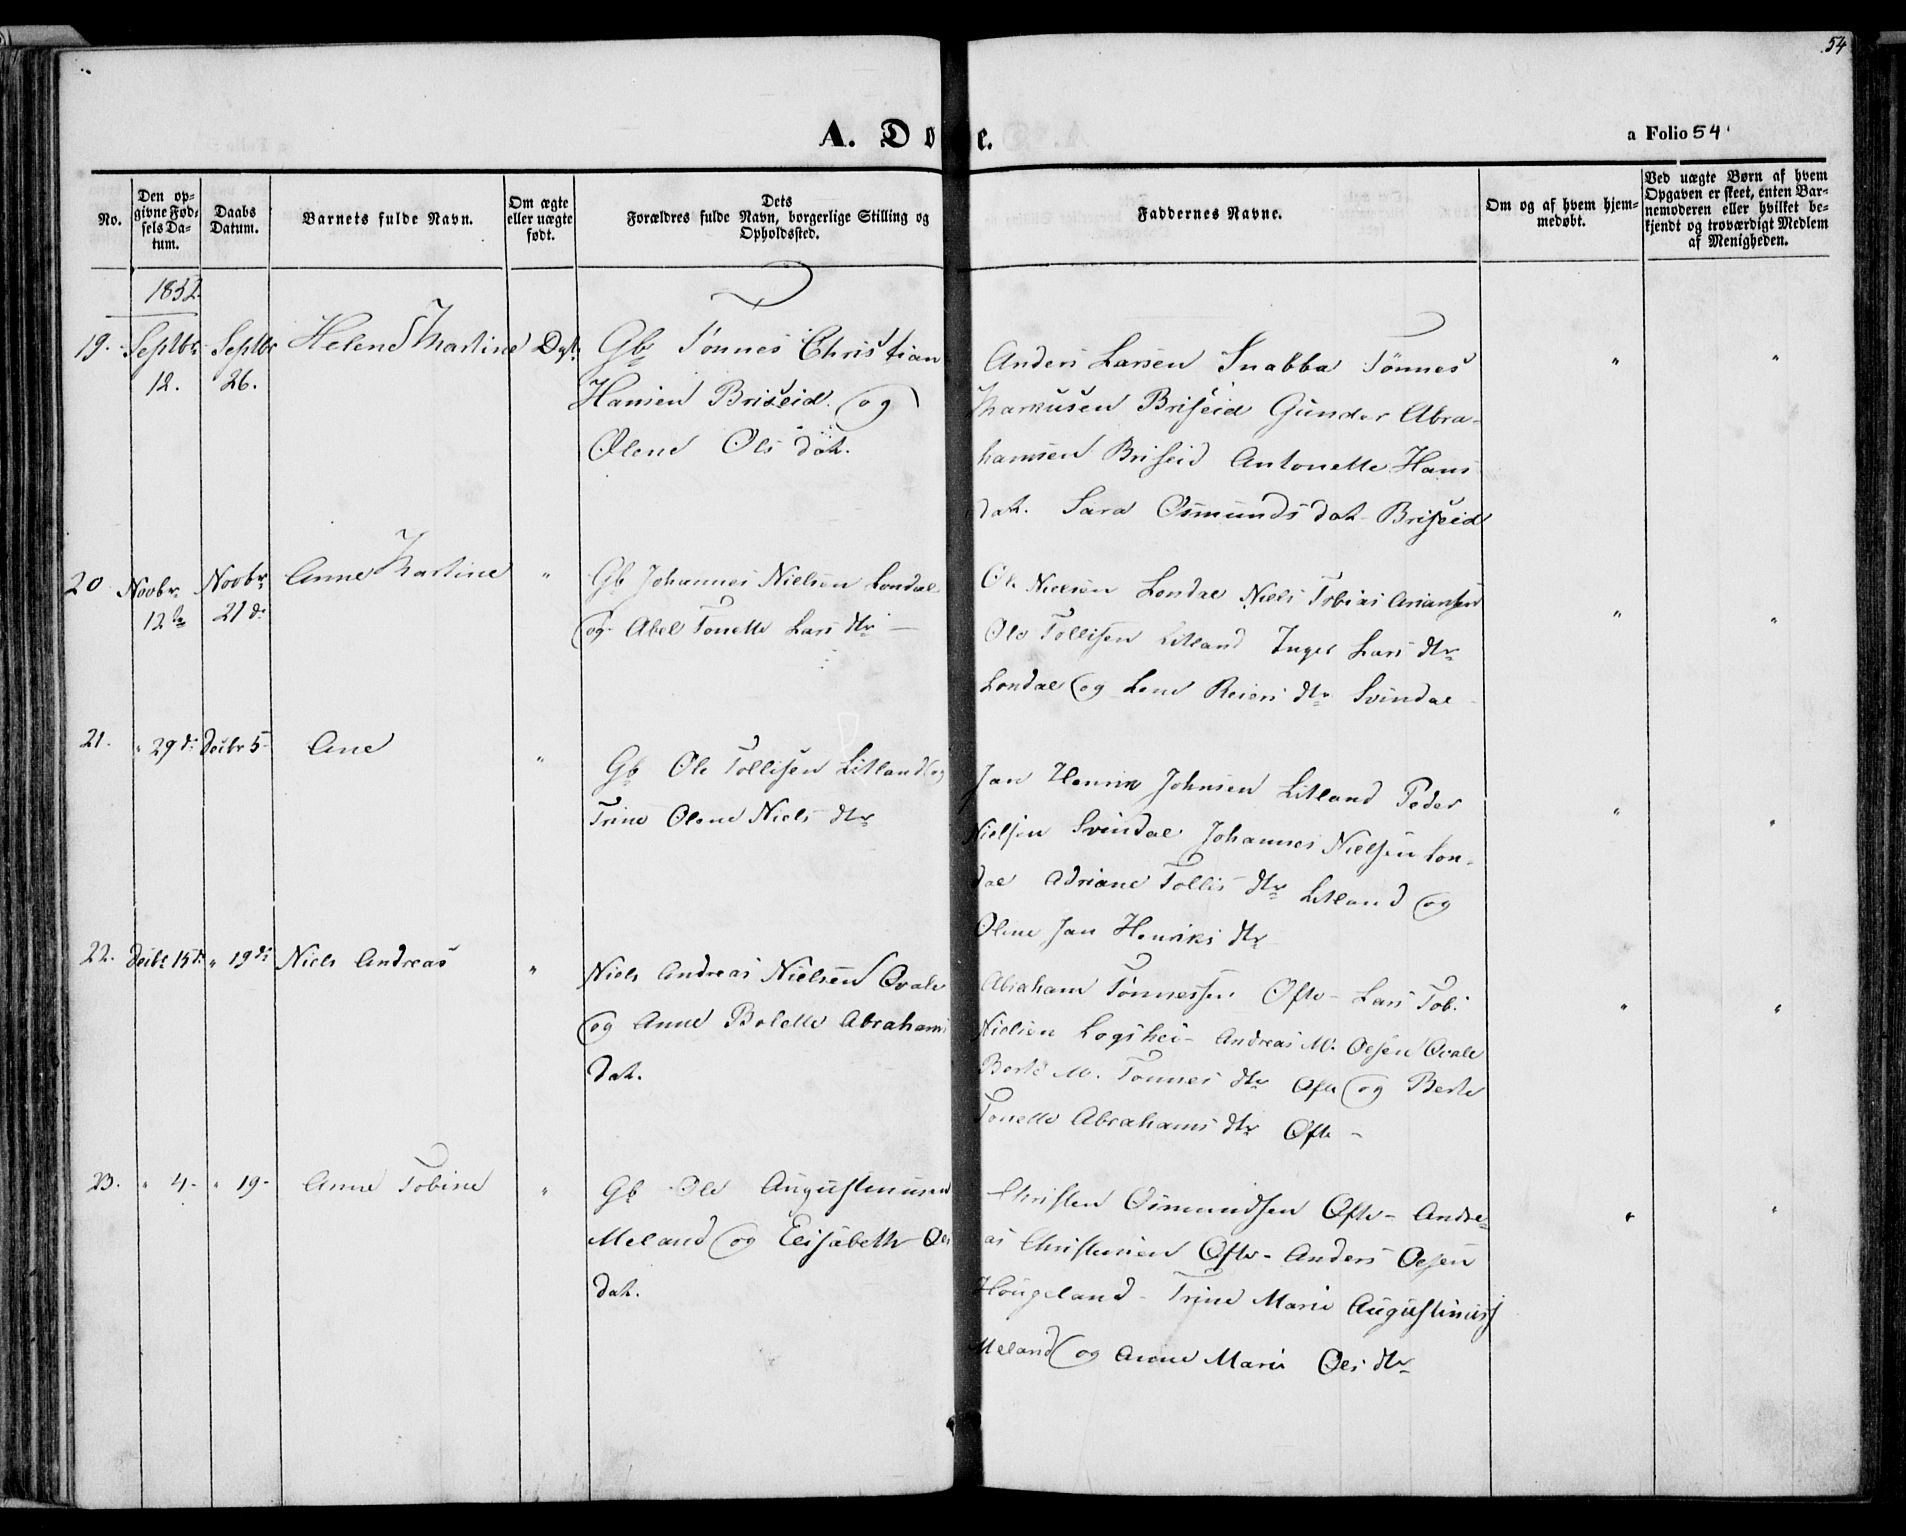 54
A. Døbte.
a Folio 54
No.
Den op-
givne Fød-
sels Da-
tum.
Daabs
Datum.
Barnets fulde Navn.
Om ægte
eller uægte
født.
Dets
Forældres fulde Navn, borgerlige Stilling og
Opholdssted.
Faddernes Navne.
Om og af hvem hjem-
medøbt.
Ved uægte Børn af hvem
Opgaven er skeet, enten Bar-
nemoderen eller hvilket be-
kjendt og troværdigt Medlem
af Menigheden.
1852
19. Septbr 12. Septbr 26. Helene Martine
Gb Tönnes Christian
Hansen Briseid og
Olene Ols dat.
Anders Larsen Snabba Tönnes
Markusen Briseid Gunder Abra-
hamsen Briseid Antonette Hans
dat. Sara Osmunds dat. Briseid
" "
20 Novbr 12te Novbr 21de Anne Martine "
Gb Johannes Nielsen Londal
og Abel Tonette Lars dtr —
Ole Nielsen Londal Niels Tobias
Ole Tollisen Litland Inger Lars dtr
Londal og Lene Reiers dtr Svindal
" "
21. " 29de Decbr 5 Ane "
Gb Ole Tollisen Litland og
Trine Olene Niels dtr
Jan Henrik Johnsen Litland Peder
Nielsen Svindal Johannes Nielsen Lon-
dal Adriane Tollis dtr Litland og
Olene Jan Henriks dtr
" "
22. Decbr 15de " 19de Niels Andreas "
Niels Andreas Nielsen Qvale
og Anne Bolette Abrahams
dat.
Abraham Tönnessen Øfte - Lars Tob.
Nielsen Logshei - Andreas M. Olsen Qvale
Berte M. Tonnes dtr Øfte og Berte
Tonette Abrahams dtr Øfte -
" "
23. " 4 - " 19 - Anne Tobine "
Gb Ole Augustinusen
Meland og Elisabeth Ols
dat.
Christen Osmundsen Øfte - Andre-
as Christensen Øfte - Anders Olsen
Hougeland - Trine Marie Augustinus
Meland og Anne Marie Ols dtr
" "